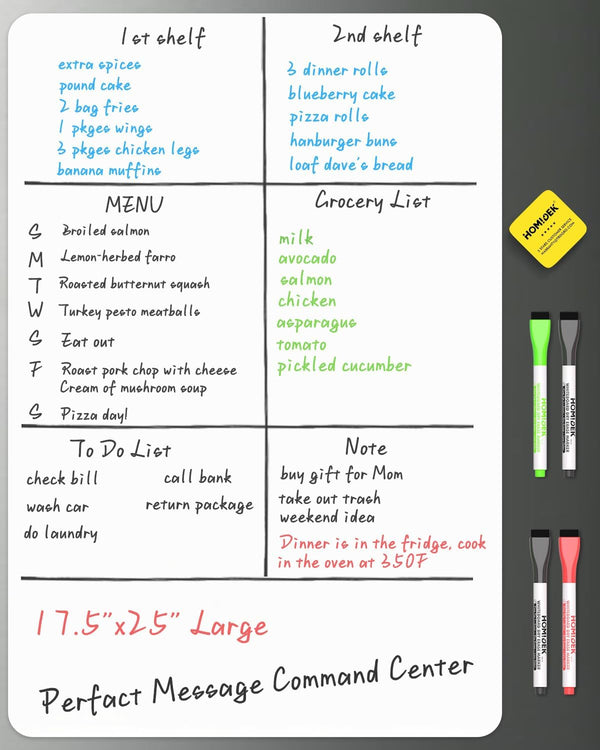 1st shelf
extra spices
pound cake
2 bag fries
1 pkges wings
3 pkges chicken legs
banana muffins
2nd shelf
3 dinner rolls
blueberry cake
pizza rolls
hanburger buns
loaf dave's bread
MENU
S Broiled salmon
M Lemon-herbed farro
T Roasted butternut squash
W Turkey pesto meatballs
S Eat out
F Roast pork chop with cheese
Cream of mushroom soup
S Pizza day!
Grocery List
milk
avocado
salmon
chicken
asparagus
tomato
pickled cucumber
To Do List
check bill
call bank
wash car
return package
do laundry
Note
buy gift for Mom
take out trash
weekend idea
Dinner is in the fridge, cook
in the oven at 350F
17.5"x25" Large
Perfact Message Command Center
HOMIDEK
HOMIDEK
HOMIDEK
HOMIDEK
HOMIDEK